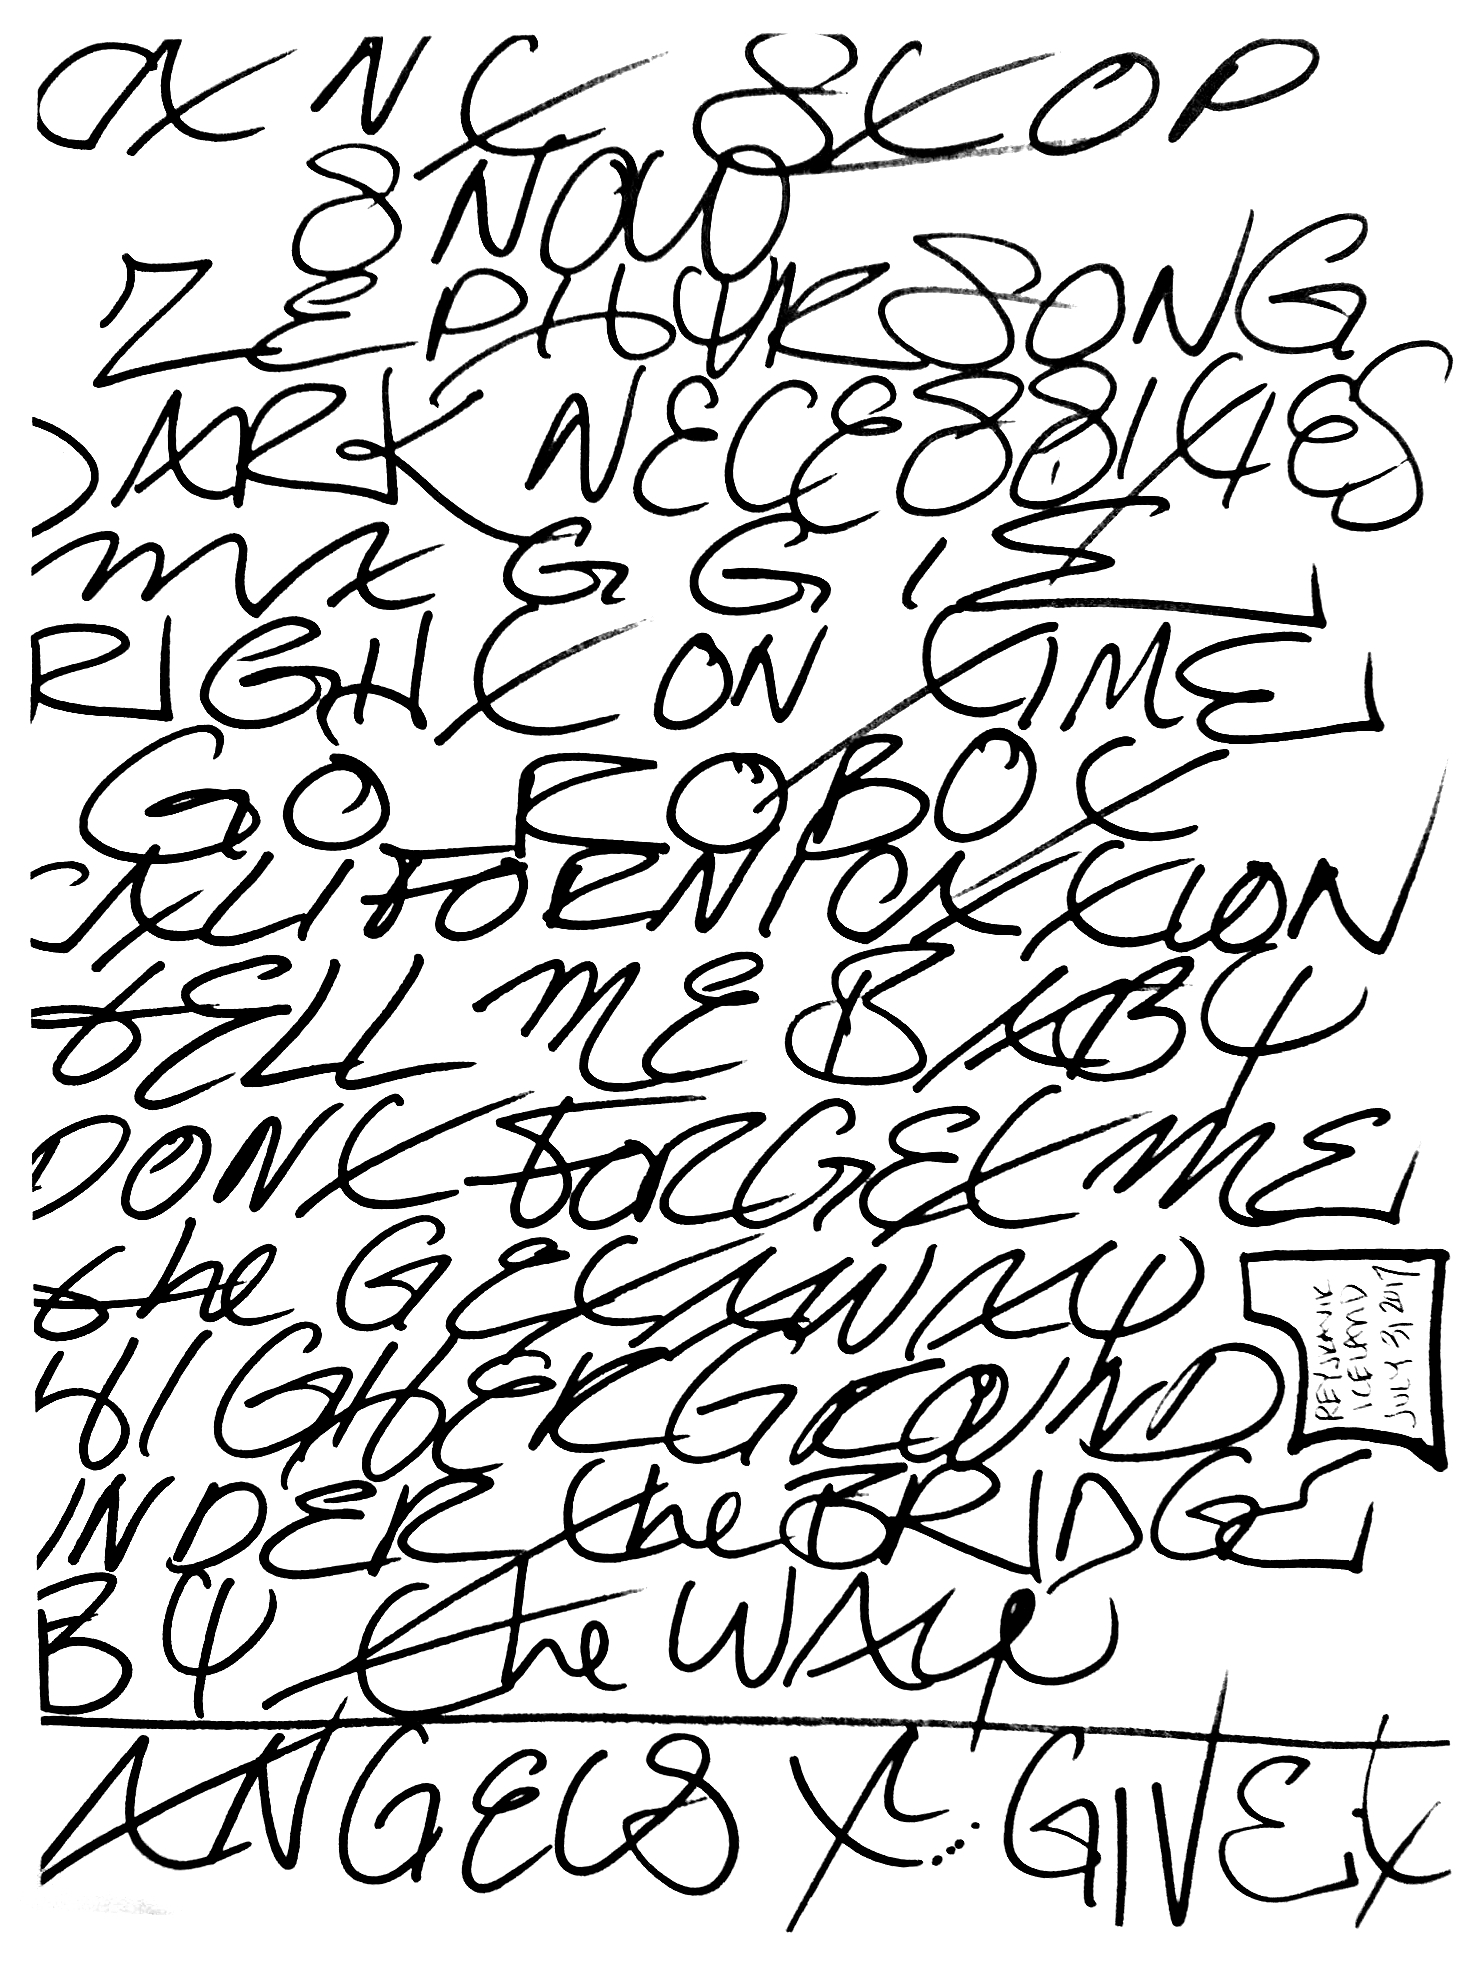 CANT STOP
SNOW
ZEPHYR SONG
DARK NECESSITIES
MAGGIE
RIGHT ON TIME
GO ROBOT
CALIFORNICATION
TELL ME BABY
DONT FORGET ME
the GETAWAY
HIGHER GROUND
UNDER the BRIDGE
BY the WAY
ANGELS GIVE
REYJKAVIK
ICELAND
JULY 31 2017